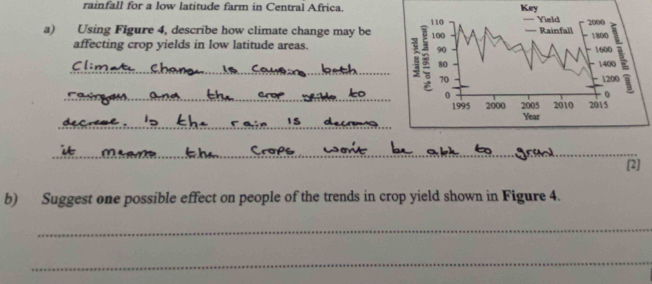 rainfall for a low latitude farm in Central Africa.
a) Using Figure 4, describe how climate change may be
affecting crop yields in low latitude areas.
Climate change is causing both
and the crop to
decrease. the rain is
it means the crops won't be able to grow
[2]
Key
Yield
Rainfall
Maize yield
(% of 1985 harvest)
110
100
90
80
70
0
2000
1800
1600
1400
1200
0
Annual rainfall (mm)
1995 2000 2005 2010 2015
Year
b) Suggest one possible effect on people of the trends in crop yield shown in Figure 4.